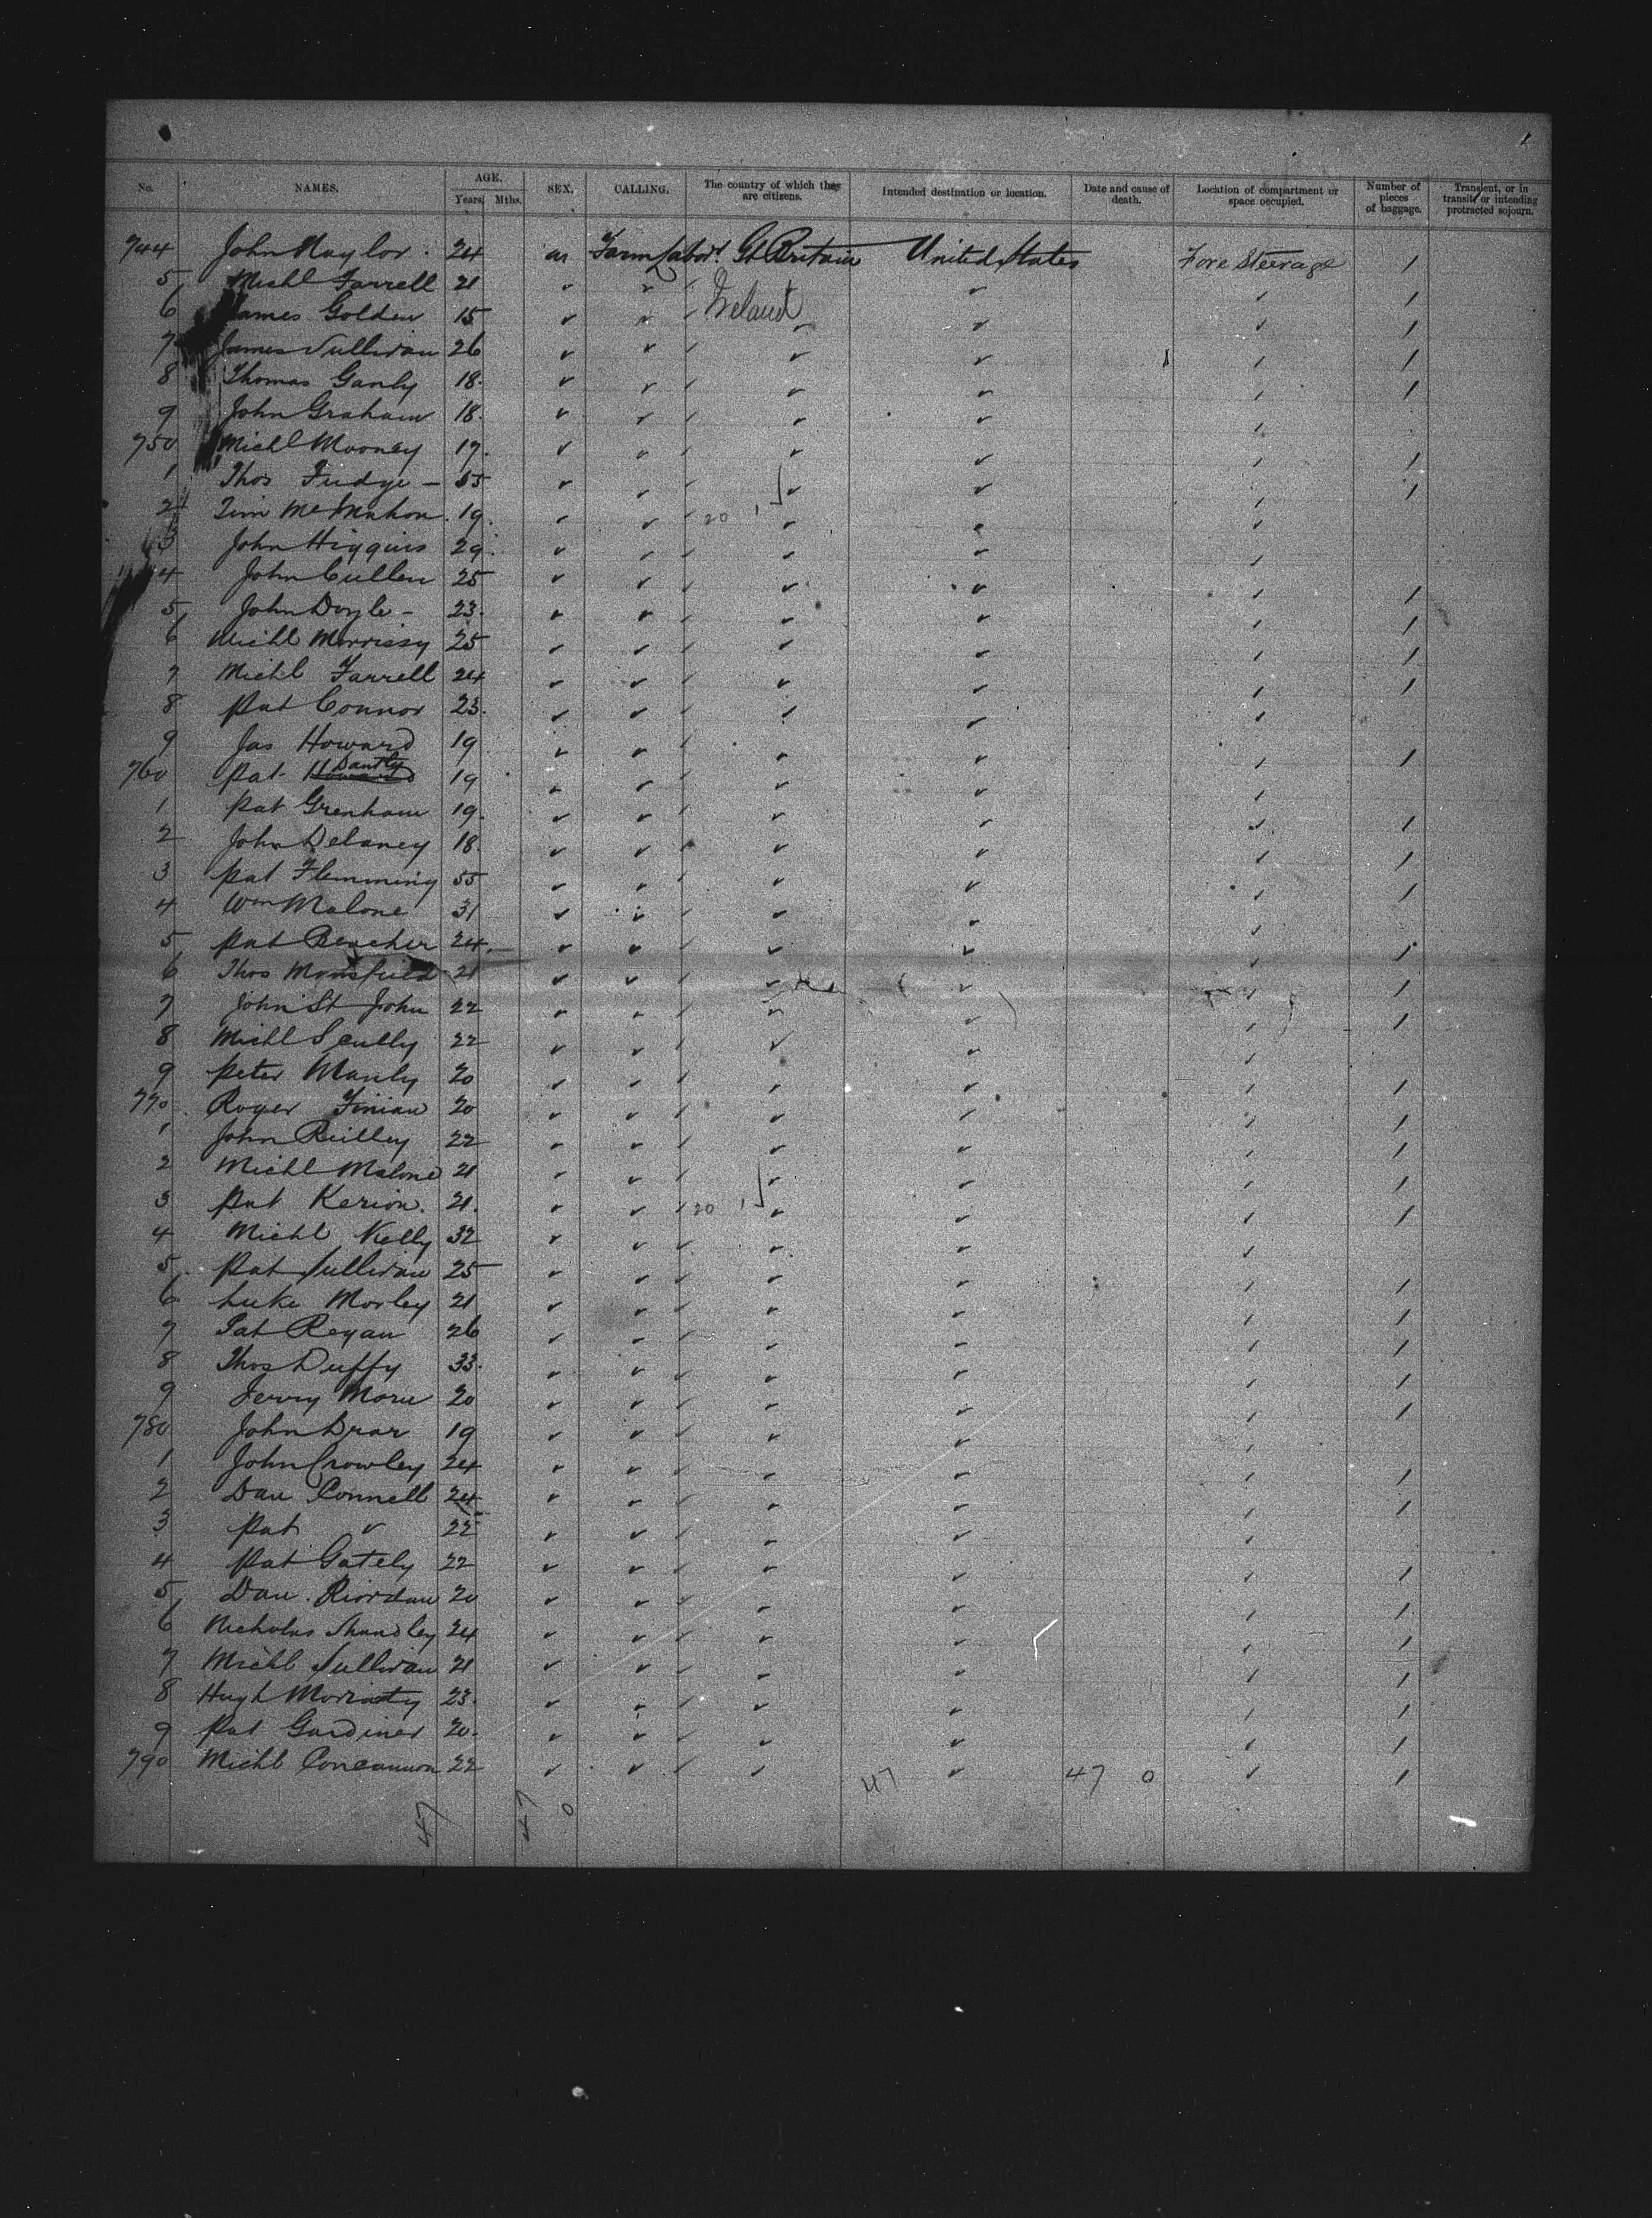 No. NAMES. AGE. Years. Mths. SEX. CALLING. The country of which they are citizens. Intended destination or location. Date and cause of death. Location of compartment or space occupied. Number of pieces of baggage. Transient, or in transit, or intending protracted sojourn.
744 John Naylor 24 m Farm Labor. Gt Britain United States Fore Steerage 1
5 Michl Farrell 21 ✓ ✓ Ireland ✓ ✓ 1
6 James Golden 15 ✓ ✓ ✓ ✓ ✓ 1
7 James Sullivan 26 ✓ ✓ ✓ ✓ ✓ 1
8 Thomas Ganly 18 ✓ ✓ ✓ ✓ ✓ 1
9 John Graham 18 ✓ ✓ ✓ ✓ ✓
750 Michl Mooney 17 ✓ ✓ ✓ ✓ ✓ 1
1 Thos Fudge 55 ✓ ✓ ✓ ✓ ✓ 1
2 Tim McMahon 19 ✓ ✓ 20 ✓ ✓ ✓
3 John Higgins 29 ✓ ✓ ✓ ✓ ✓
4 John Cullen 25 ✓ ✓ ✓ ✓ ✓ 1
5 John Doyle 23 ✓ ✓ ✓ ✓ ✓ 1
6 Michl Morrissy 25 ✓ ✓ ✓ ✓ ✓ 1
7 Michl Farrell 24 ✓ ✓ ✓ ✓ ✓ 1
8 Pat Connor 23 ✓ ✓ ✓ ✓ ✓
9 Jas Howard 19 ✓ ✓ ✓ ✓ ✓ 1
760 Pat 19 ✓ ✓ ✓ ✓ ✓
1 Pat Grenham 19 ✓ ✓ ✓ ✓ ✓ 1
2 John Delaney 18 ✓ ✓ ✓ ✓ ✓ 1
3 Pat Flemming 55 ✓ ✓ ✓ ✓ ✓ 1
4 Wm Malone 31 ✓ ✓ ✓ ✓ ✓
5 Pat Beacher 24 ✓ ✓ ✓ ✓ ✓ 1
6 Thos Mansfield 21 ✓ ✓ ✓ ✓ ✓ 1
7 John St John 22 ✓ ✓ ✓ ✓ ✓ 1
8 Michl Scully 22 ✓ ✓ ✓ ✓ ✓
9 Peter Manly 20 ✓ ✓ ✓ ✓ ✓ 1
770 Roger Finian 20 ✓ ✓ ✓ ✓ ✓ 1
1 John Reilley 22 ✓ ✓ ✓ ✓ ✓ 1
2 Michl Malone 21 ✓ ✓ ✓ ✓ ✓ 1
3 Pat Kerion 21 ✓ ✓ 20 ✓ ✓ ✓ 1
4 Michl Kelly 32 ✓ ✓ ✓ ✓ ✓
5 Pat Sullivan 25 ✓ ✓ ✓ ✓ ✓ 1
6 Luke Morley 21 ✓ ✓ ✓ ✓ ✓ 1
7 Pat Regan 26 ✓ ✓ ✓ ✓ ✓ 1
8 Thos Duffy 33 ✓ ✓ ✓ ✓ ✓ 1
9 Jerry 20 ✓ ✓ ✓ ✓ ✓ 1
780 John 19 ✓ ✓ ✓ ✓ ✓
1 John Crowley 24 ✓ ✓ ✓ ✓ ✓ 1
2 Dan Connell 24 ✓ ✓ ✓ ✓ ✓ 1
3 Pat ✓ 22 ✓ ✓ ✓ ✓ ✓
4 Pat Gately 22 ✓ ✓ ✓ ✓ ✓ 1
5 Dan Riordan 20 ✓ ✓ ✓ ✓ ✓ 1
6 Nicholas Shandley 24 ✓ ✓ ✓ ✓ ✓ 1
7 Michl Sullivan 21 ✓ ✓ ✓ ✓ ✓ 1
8 Hugh Moriarty 23 ✓ ✓ ✓ ✓ ✓ 1
9 Pat Gardiner 20 ✓ ✓ ✓ ✓ ✓ 1
790 Michl Concannon 22 ✓ ✓ ✓ ✓ ✓ 1
47 47 0 47 47 0